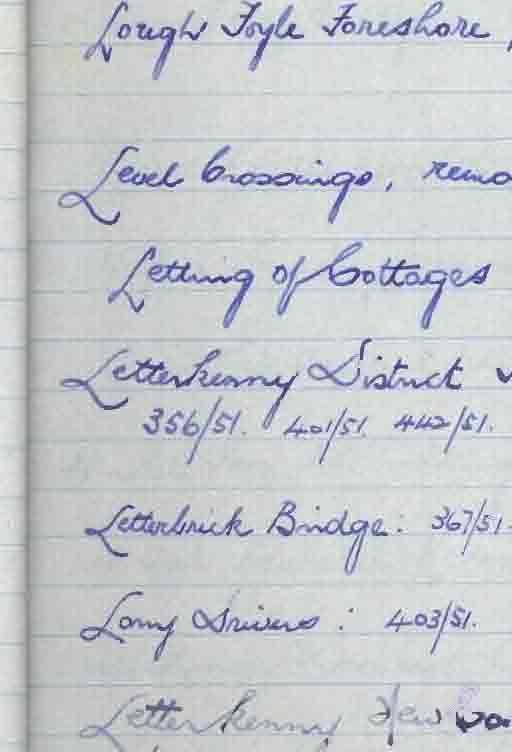 Lough Foyle Foreshore,
Level Crossings, remo
Letting of Cottages
Letterkenny District
356/51. 401/51. 442/51.
Letterbrick Bridge: 367/51.
Lorry Drivers: 403/51.
Letterkenny New